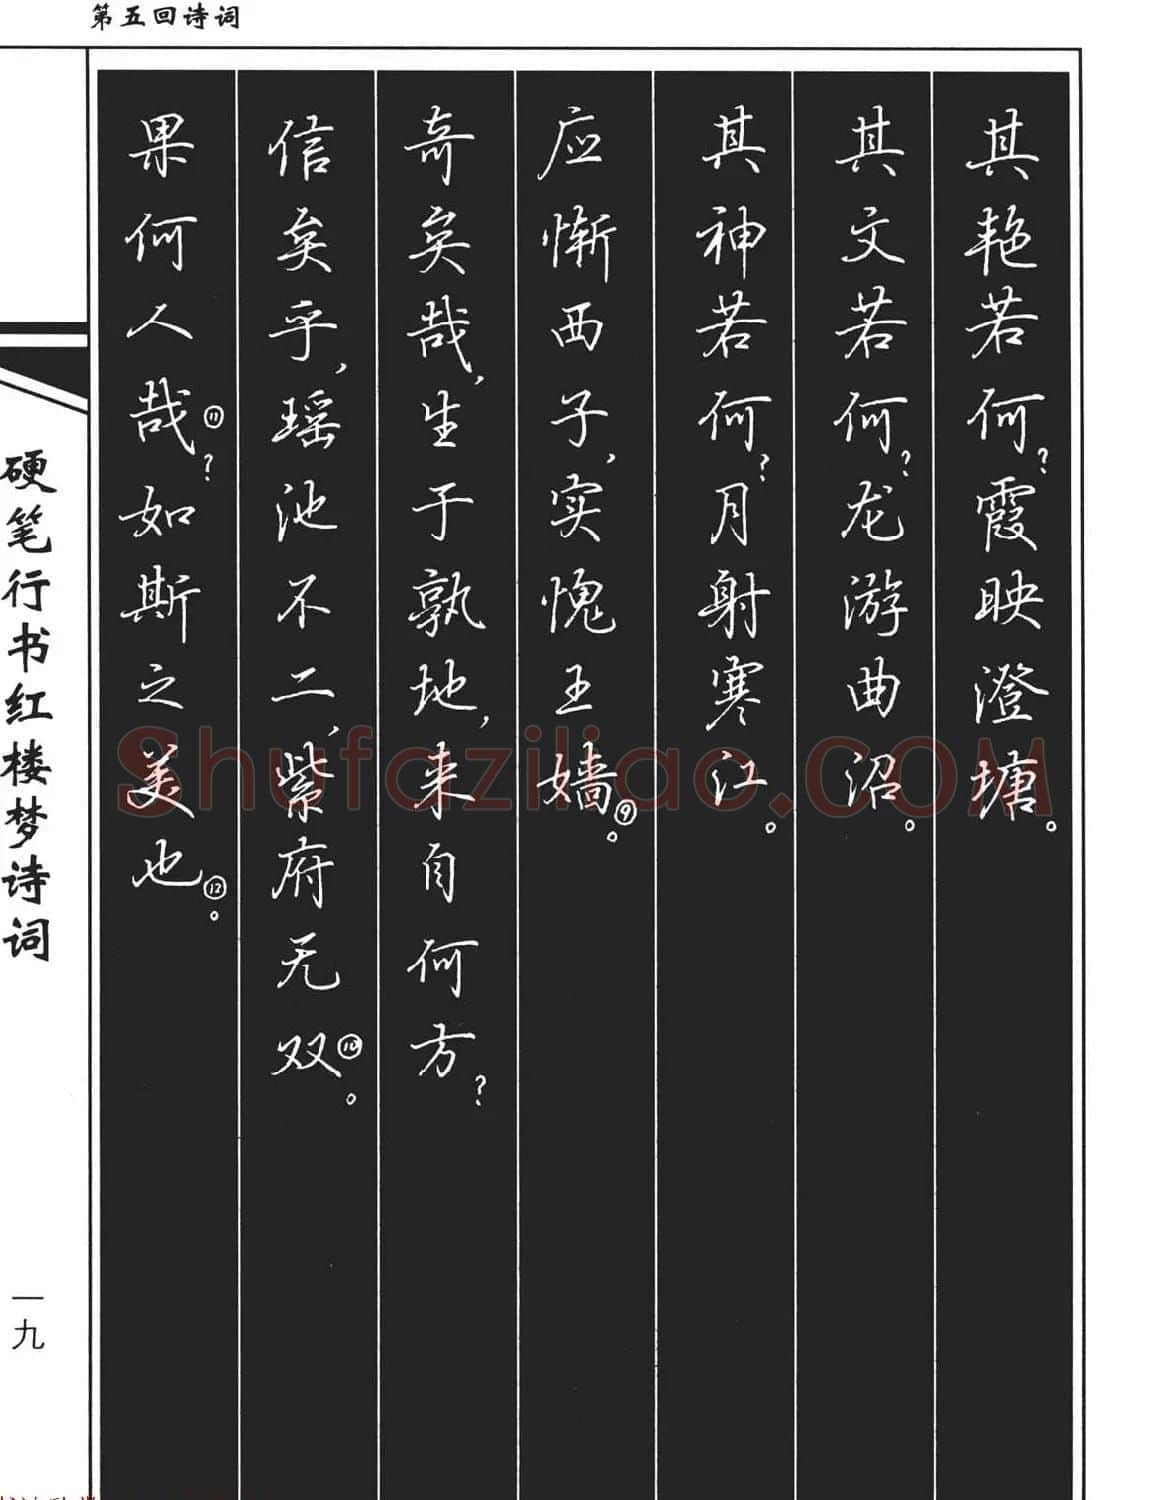 第五回诗词
其艳若何？霞映澄塘。
其文若何？龙游曲沼。
其神若何？月射寒江。
应惭西子，实愧王嫱⑨。
奇矣哉，生于孰地，来自何方？
信矣乎，瑶池不二，紫府无双⑩。
果何人哉⑪？如斯之美也⑫。
硬笔行书红楼梦诗词
一九
Shufaziliao.COM